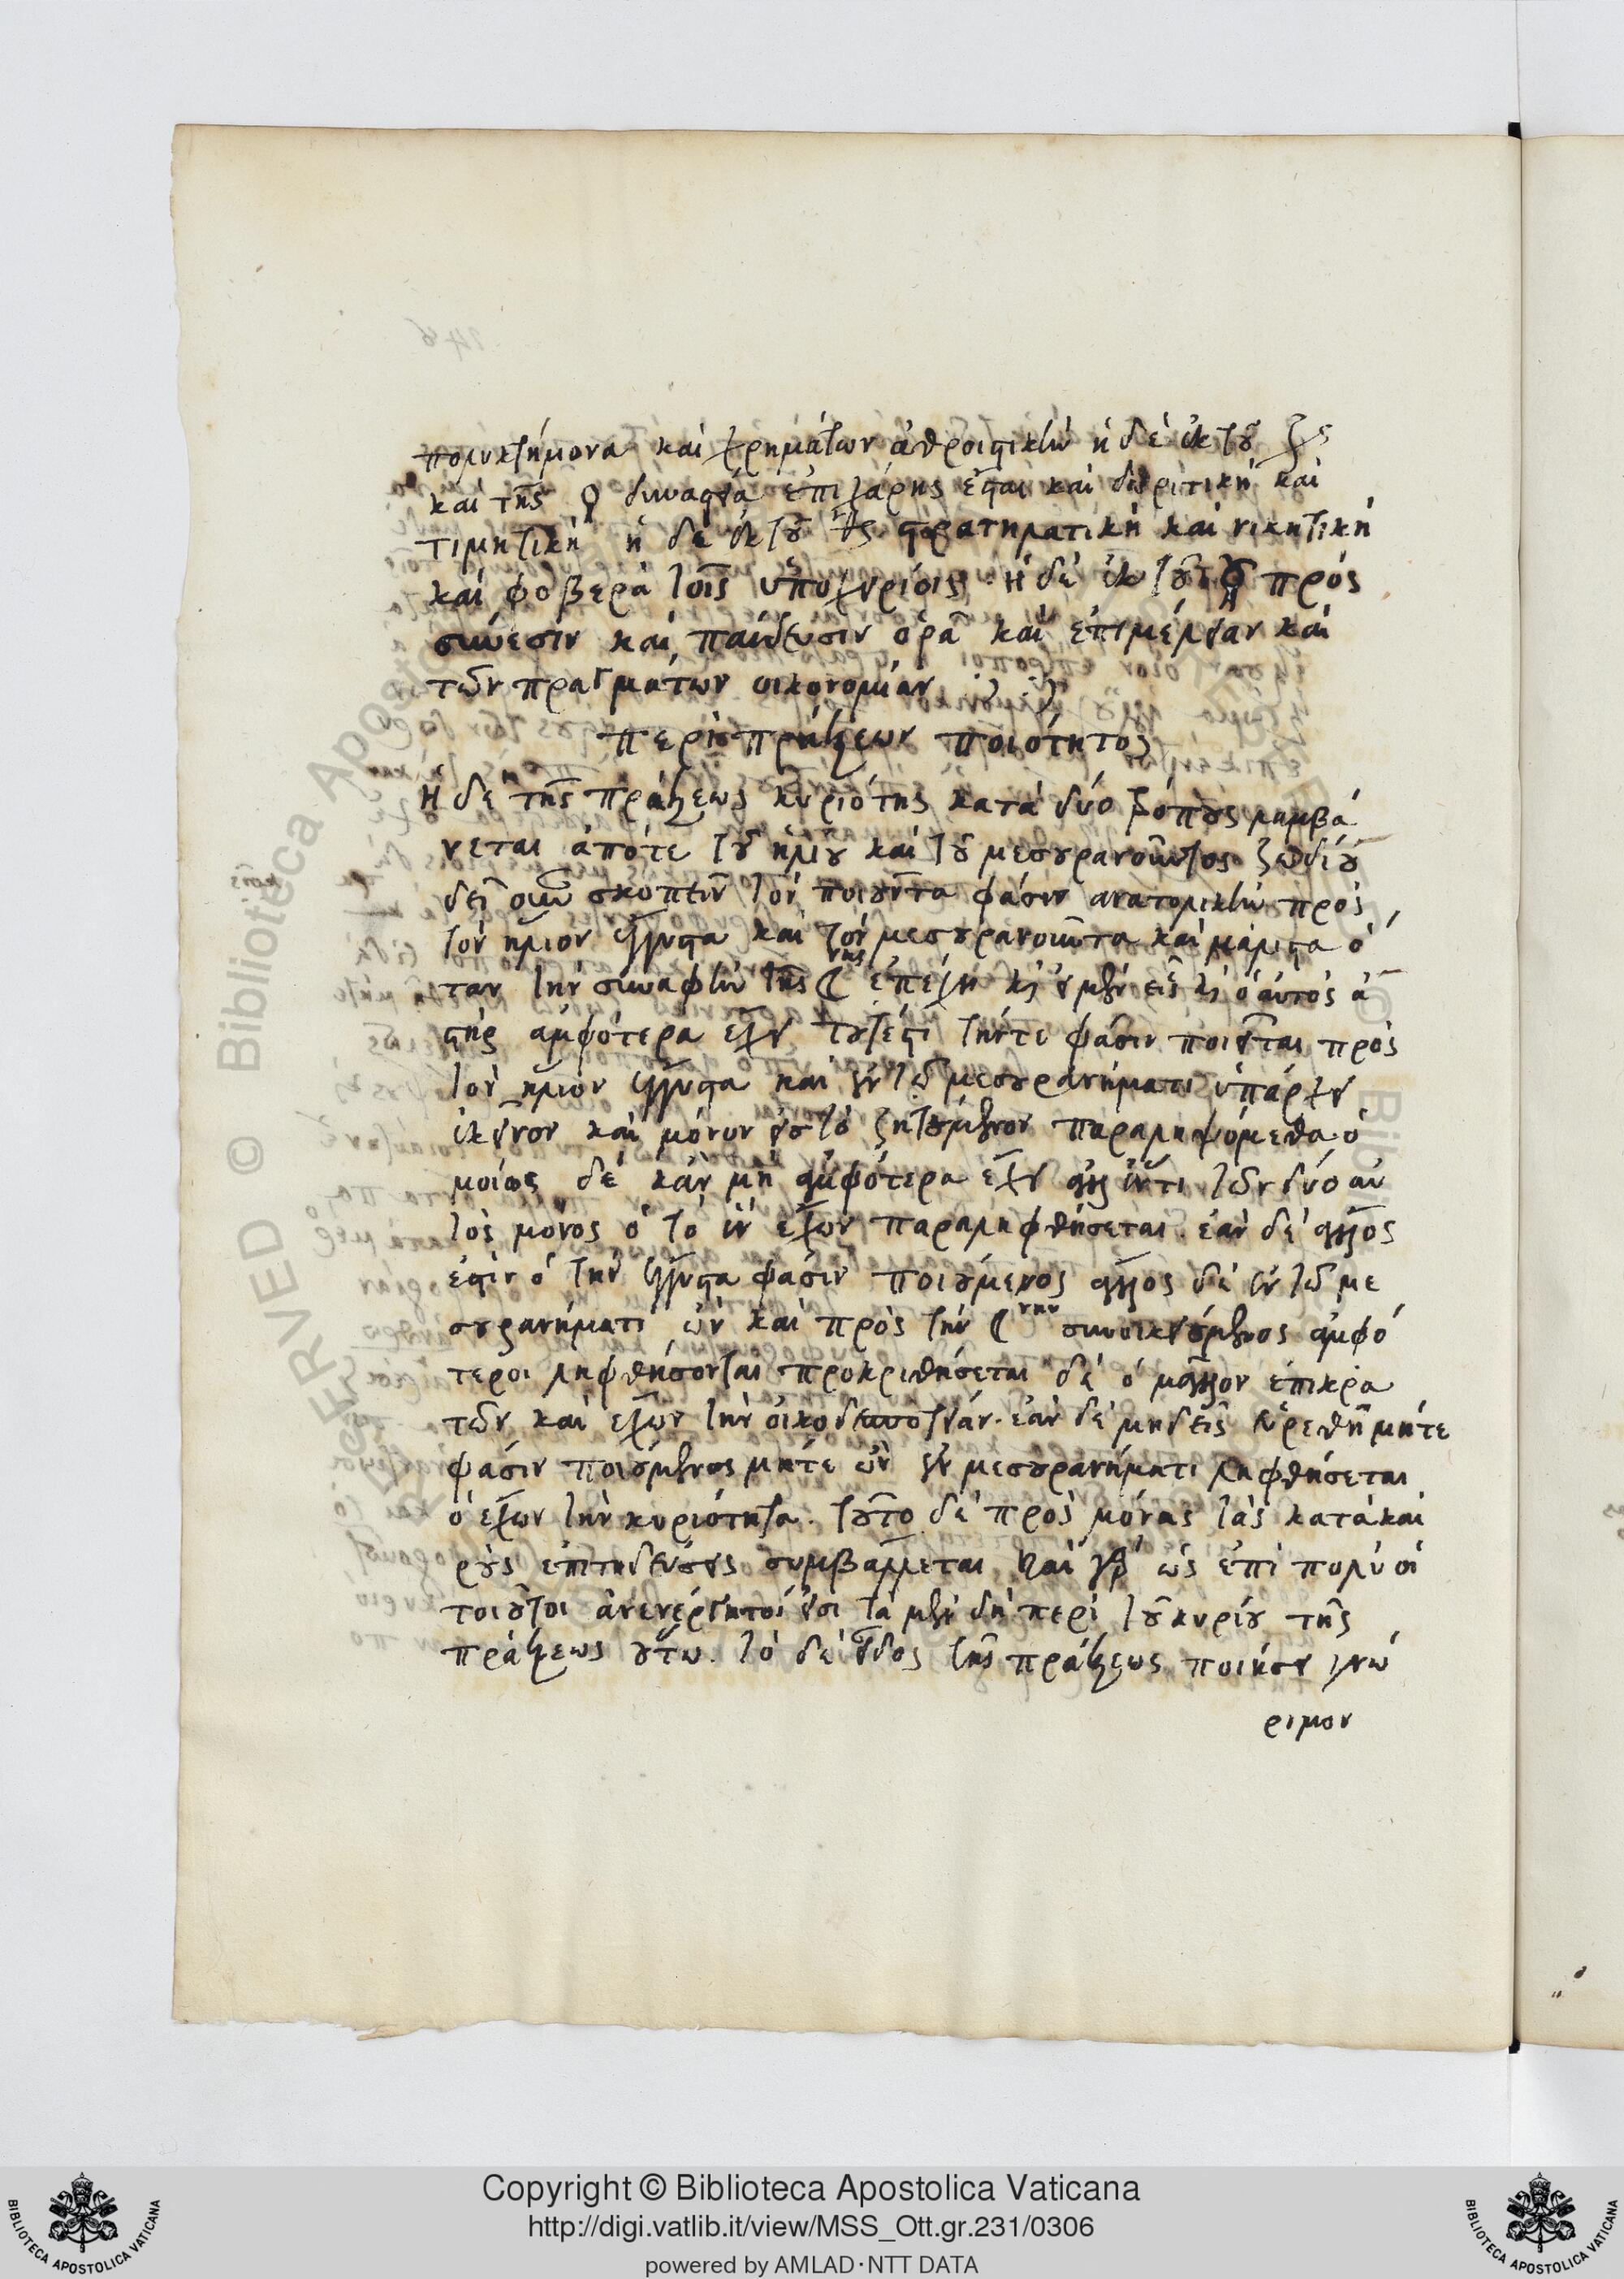 πολυκτήμονα καὶ χρημάτων ἀθροιστικήν ἡ δὲ ἐκ τοῦ
καὶ τῆς ♀ ἐπιχάρης ἔσται καὶ δωρητική καὶ
τιμητική ἡ δὲ ἐκ τοῦ στρατηλατική καὶ νικητική
καὶ φοβερὰ τοῖς ὑποχειρίοις· Ἡ δὲ ἐκ τοῦ ☿ πρὸς
σύνεσιν καὶ παίδευσιν ὁρᾶ καὶ ἐπιμέλειαν καὶ
τῶν πραγμάτων οἰκονομίαν
περὶ πράξεων ποιότητος
Ἡ δὲ τῆς πράξεως κυριότης κατὰ δύο τρόπους λαμβά
νεται ἀπότε τοῦ ἡλίου καὶ τοῦ μεσουρανοῦντος ζωδίου
δεῖ οὖν σκοπεῖν τὸν ποιοῦντα φάσιν ἀνατολικὴν πρὸς
τὸν ἥλιον ἔγγιστα καὶ τὸν μεσουρανοῦντα καὶ μάλιστα ὅ
ταν τὴν συναφὴν τῆς ☾νης ἐπέχη κἂν μὲν εἷς ᾖ ὁ αὐτὸς ἀ
στὴρ ἀμφότερα ἔχει τουτέστι τήντε φάσιν ποιεῖται πρὸς
τὸν ἥλιον ἔγγιστα καὶ ἐν τῷ μεσουρανήματι ὑπάρχει
ἐκεῖνον καὶ μόνον εἰς τὸ ζητούμενον παραληψόμεθα ὁ
μοίως δὲ κἂν μὴ ἀμφότερα ἔχει ἀλλ' ἕν τι τῶν δύο αὐ
τὸς μόνος ὁ τὸ ἓν ἔχων παραληφθήσεται. ἐὰν δὲ ἄλλος
ἐστὶν ὁ τὴν ἔγγιστα φάσιν ποιούμενος ἄλλος δὲ ἐν τῷ με
σουρανήματι ὢν καὶ πρὸς τὴν ☾νην συνοικειούμενος ἀμφό
τεροι ληφθήσονται προκριθήσεται δὲ ὁ μᾶλλον ἐπικρα
τῶν καὶ ἔχων τὴν οἰκοδεσποτείαν. ἐὰν δὲ μηδεὶς εὑρεθῆ μήτε
φάσιν ποιούμενος μήτε ὢν ἐν μεσουρανήματι ληφθήσεται
ὁ ἔχων τὴν κυριότητα. τοῦτο δὲ πρὸς μόνας τὰς κατὰ και
ροὺς ἐπιτηδεύσεις συμβάλλεται καὶ γὰρ ὡς ἐπὶ πολὺ οἱ
τοιοῦτοι ἀνενέργητοί εἰσι τὰ μὲν δὴ περὶ τοῦ κυρίου τῆς
πράξεως οὕτω. τὸ δὲ εἶδος τῆς πράξεως ποιήσει γνώ
ριμον
Copyright © Biblioteca Apostolica Vaticana
http://digi.vatlib.it/view/MSS_Ott.gr.231/0306
powered by AMLAD·NTT DATA
BIBLIOTECA APOSTOLICA VATICANA
BIBLIOTECA APOSTOLICA VATICANA